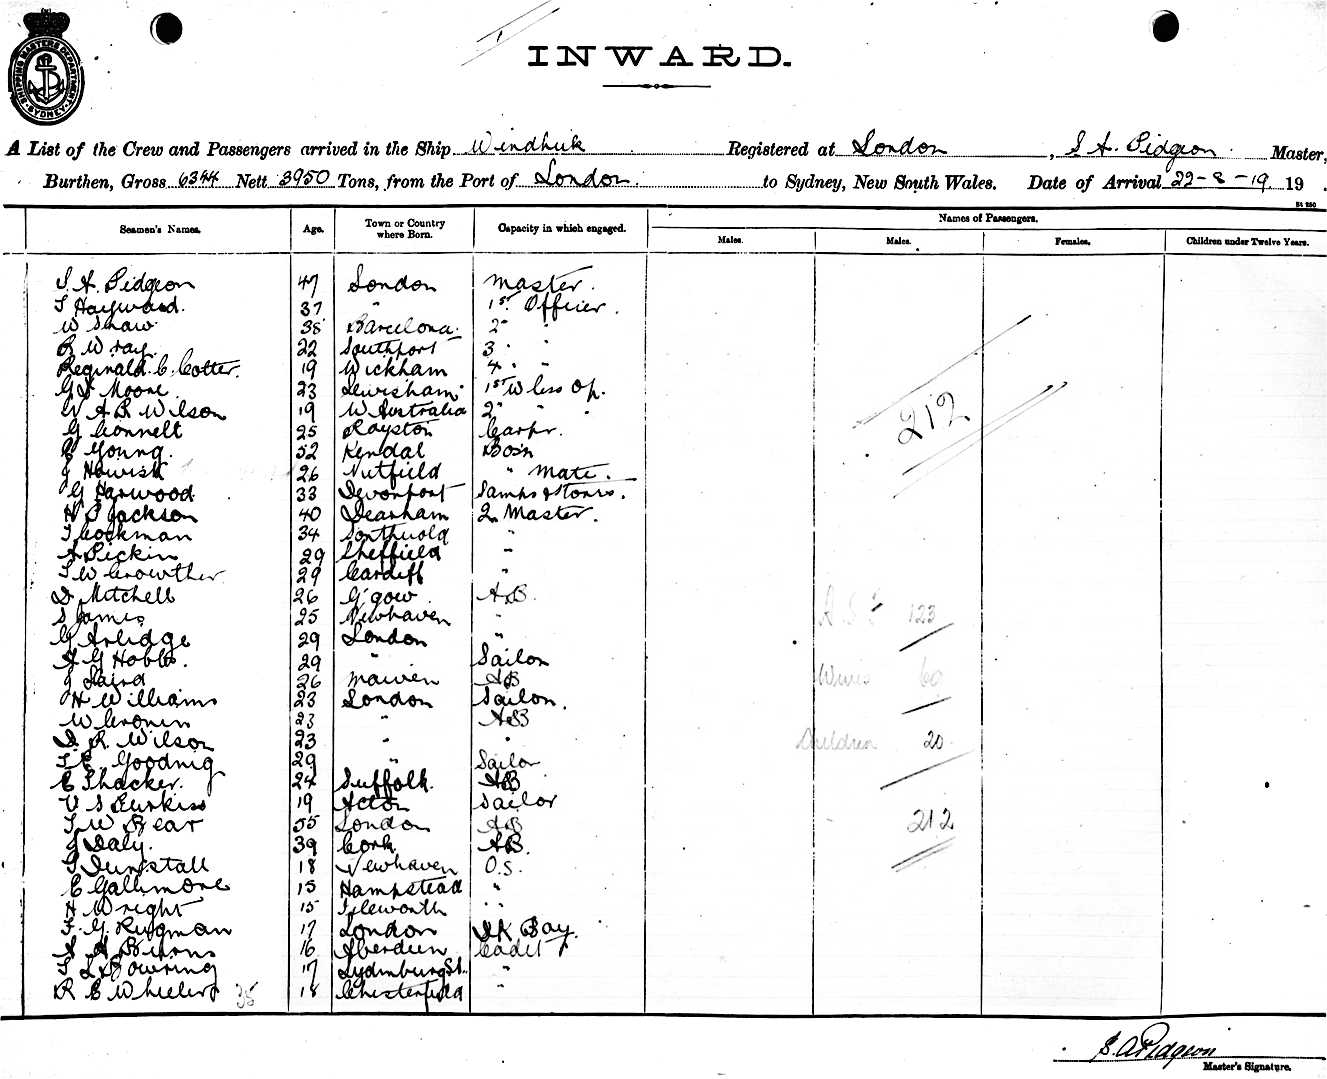 SHIPPING MASTERS DEPARTMENT SYDNEY
INWARD.
A List of the Crew and Passengers arrived in the Ship Windhuk Registered at London, S A Pidgeon Master,
Burthen, Gross 6344 Nett 3950 Tons, from the Port of London. to Sydney, New South Wales. Date of Arrival 22-8-19 19 .
St 250
Seamen's Names. Age. Town or Country where Born. Capacity in which engaged. Names of Passengers.
Males. Males. Females. Children under Twelve Years.
S A Pidgeon 47 London Master.
Hayward. 37 " 1st Officer.
W Shaw 38 Barcelona. 2 " "
R Wray. 22 Southport 3 " "
Reginald C. Cotter. 19 Wickham 4 " "
G S Moore 23 Lewisham 1st W less Op.
W A R Wilson 19 W Australia 2 " "
G Connelt 25 Royston Carpr.
Young. 52 Kendal Bosn
J Howish 26 Nutfield " Mate.
G Harwood 33 Devonport Lamps & Stores.
H S Jackson 40 Dearham Q Master.
Cockman 34 Southwold "
A Pickin 29 Sheffield "
W Crowther 29 Cardiff "
D Mitchell 26 G'gow AB.
S James 25 Newhaven "
G Arlidge 29 London "
A G Hobbs. 29 " Sailor
J Laird 26 AB
H Williams 23 London Sailor.
W Cronin 23 " AB
R. Wilson 23 " "
29 " Sailor
E Thacker. 24 Suffolk. AB
19 Acton Sailor
W Bear 55 London AB
J Daly. 39 Cork AB.
Tunstall 18 Newhaven O.S.
E Gallimore 15 Hampstead "
A Wright 15 Isleworth " "
G. Rugman 17 London Boy.
A Burns 16 Aberdeen Cadet
Bowring 17 "
R E Wheeler 18 Chesterfield "
35
212
123
Wives 69
Children 20
212
S. A Pidgeon
Master's Signature.